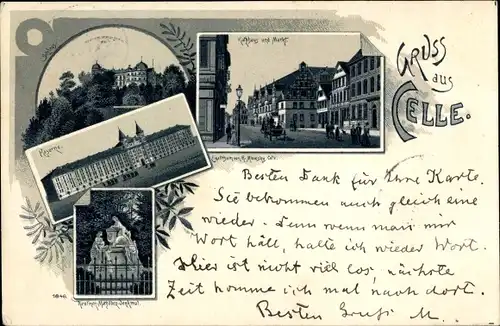 Schloss
Rathaus und Markt.
GRUSS
aus
CELLE.
Kaserne.
Königin Mathilden-Denkmal.
Besten Dank für Ihre Karte.
Sie bekommen auch gleich eine
wieder. Denn wenn man mir
Wort hält, halte ich wieder Wort.
Hier ist nicht viel los, nächste
Zeit komme ich mal nach dort.
Besten Gruß M.